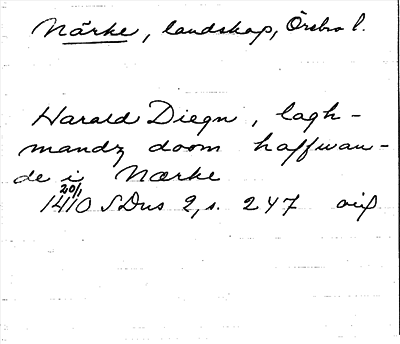 Närke, landskap, Örebro l.
Harald Diegn, lagh-
mandz doom haffwan-
de i Nærke
20/1
1410 SDns 2, s. 247 avs